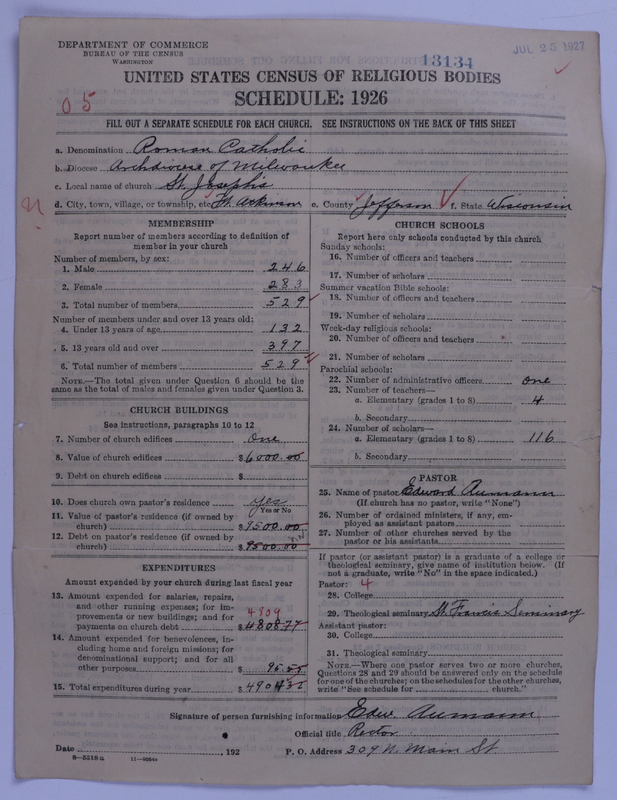 DEPARTMENT OF COMMERCE
BUREAU OF THE CENSUS
WASHINGTON
13134
JUL 25 1927
UNITED STATES CENSUS OF RELIGIOUS BODIES
SCHEDULE: 1926
05
FILL OUT A SEPARATE SCHEDULE FOR EACH CHURCH. SEE INSTRUCTIONS ON THE BACK OF THIS SHEET
a. Denomination Roman Catholic
b. Diocese Archdiocese of Milwaukee
c. Local name of church St. Joseph's
d. City, town, village, or township, etc. Ft. Atkinson e. County Jefferson f. State Wisconsin
MEMBERSHIP
Report number of members according to definition of
member in your church
Number of members, by sex:
1. Male 246
2. Female 283
3. Total number of members 529
Number of members under and over 13 years old:
4. Under 13 years of age 132
5. 13 years old and over 397
6. Total number of members 529
NOTE.—The total given under Question 6 should be the
same as the total of males and females given under Question 3.
CHURCH BUILDINGS
See instructions, paragraphs 10 to 12
7. Number of church edifices One
8. Value of church edifices $ 6000.00
9. Debt on church edifices $
10. Does church own pastor's residence Yes
Yes or No
11. Value of pastor's residence (if owned by
church) $ 9500.00
12. Debt on pastor's residence (if owned by
church) $ 9500.00
EXPENDITURES
Amount expended by your church during last fiscal year
13. Amount expended for salaries, repairs,
and other running expenses; for im-
provements or new buildings; and for
payments on church debt $ 4808 77
4809
14. Amount expended for benevolences, in-
cluding home and foreign missions; for
denominational support; and for all
other purposes $ 95.55
15. Total expenditures during year $
CHURCH SCHOOLS
Report here only schools conducted by this church
Sunday schools:
16. Number of officers and teachers
17. Number of scholars
Summer vacation Bible schools:
18. Number of officers and teachers
19. Number of scholars
Week-day religious schools:
20. Number of officers and teachers
21. Number of scholars
Parochial schools:
22. Number of administrative officers One
23. Number of teachers—
a. Elementary (grades 1 to 8) 4
b. Secondary
24. Number of scholars—
a. Elementary (grades 1 to 8) 116
b. Secondary
PASTOR
25. Name of pastor Edward Aumann
(If church has no pastor, write "None")
26. Number of ordained ministers, if any, em-
ployed as assistant pastors
27. Number of other churches served by the
pastor or his assistants
If pastor (or assistant pastor) is a graduate of a college or
theological seminary, give name of institution below. (If
not a graduate, write "No" in the space indicated.)
Pastor: 4
28. College
29. Theological seminary St. Francis Seminary
Assistant pastor:
30. College
31. Theological seminary
NOTE.—Where one pastor serves two or more churches,
Questions 28 and 29 should be answered only on the schedule
for one of the churches; on the schedules for the other churches,
write "See schedule for church."
Signature of person furnishing information Edw. Aumann
Official title Rector
Date , 192 P. O. Address 309 N. Main St.
8—5218a 11—9084a